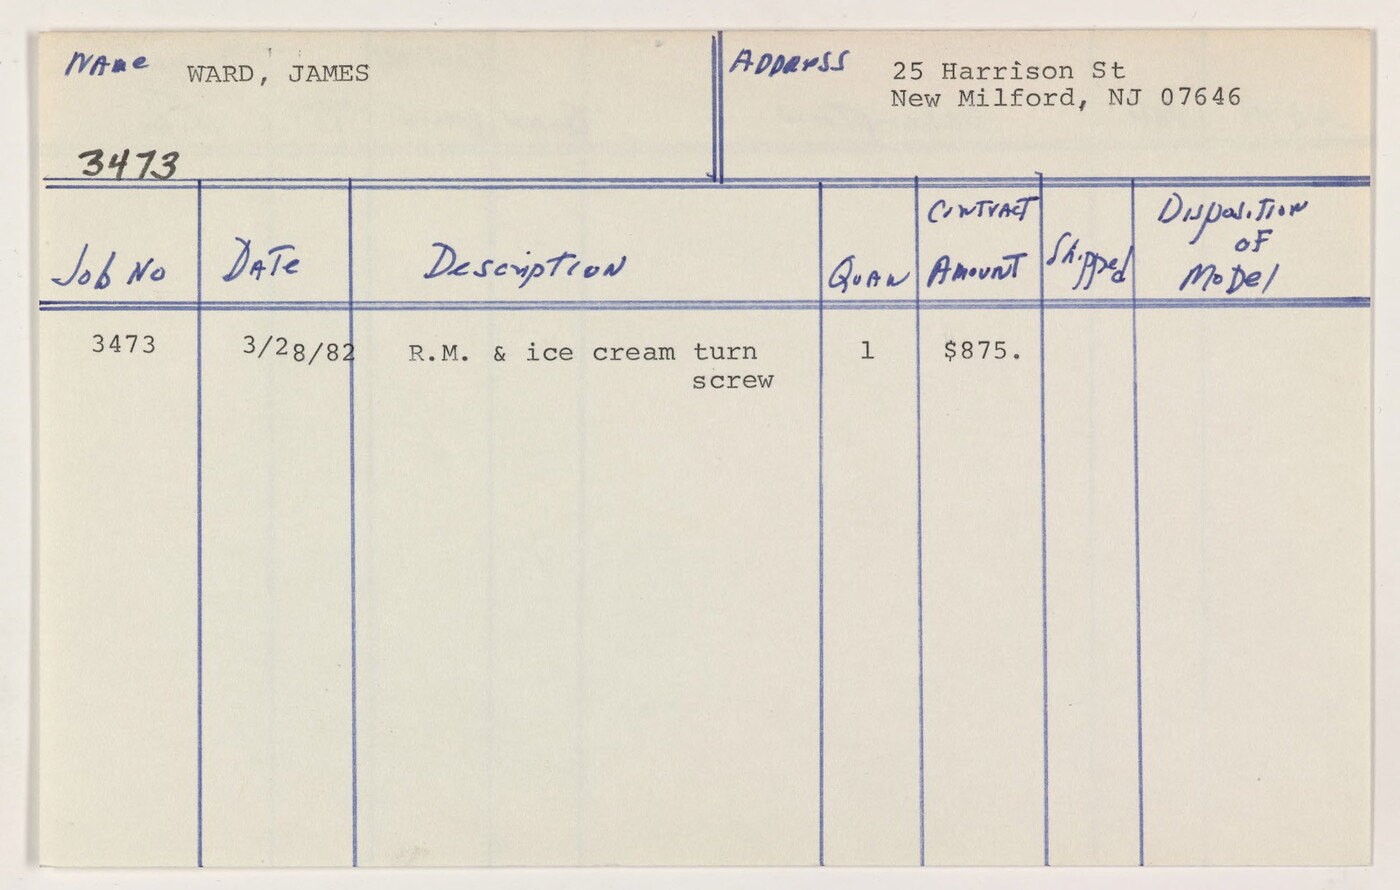 Name WARD, JAMES
Address 25 Harrison St
New Milford, NJ 07646
3473
Job No Date Description Quan Contract Amount Shipped Disposition of Model
3473 3/28/82 R.M. & ice cream turn 1 $875.
screw